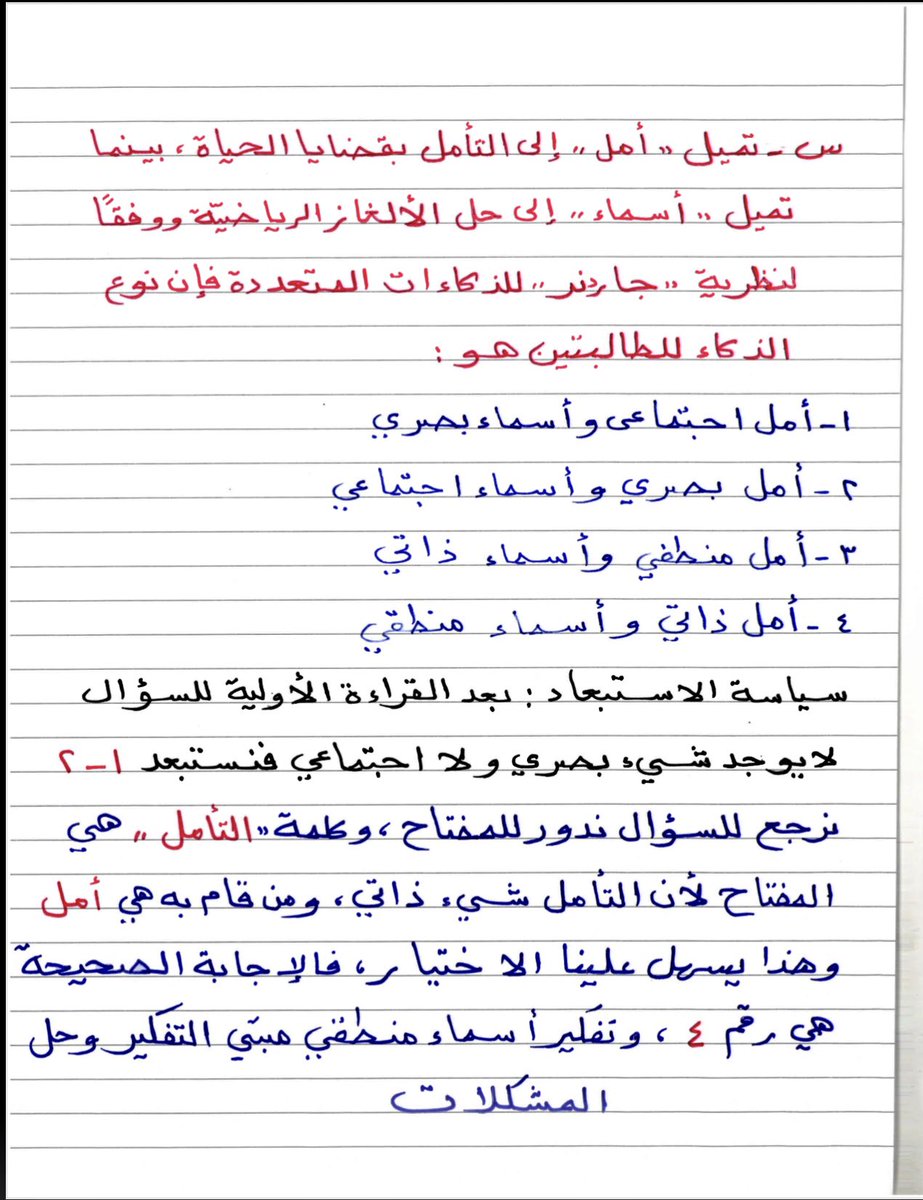 س - تميل " أمل " إلى التأمل بقضايا الحياة ، بينما
تميل " أسماء " إلى حل الألغاز الرياضيّة ووفقًا
لنظرية " جاردنر " للذكاءات المتعددة فإن نوع
الذكاء للطالبتين هو :
١- أمل اجتماعى وأسماء بصري
٢- أمل بصري وأسماء اجتماعي
٣- أمل منطقي وأسماء ذاتي
٤- أمل ذاتي وأسماء منطقي
سياسة الاستبعاد : بعد القراءة الأولية للسؤال
لايوجد شيء بصري ولا اجتماعي فنستبعد ١-٢
نرجع للسؤال ندور للمفتاح ، وكلمة " التأمل " هي
المفتاح لأن التأمل شيء ذاتي ، ومن قام به هي أمل
وهذا يسهل علينا الاختيار ، فالإجابة الصحيحة
هي رقم ٤ ، وتفكير أسماء منطقي التفكير وحل
المشكلات